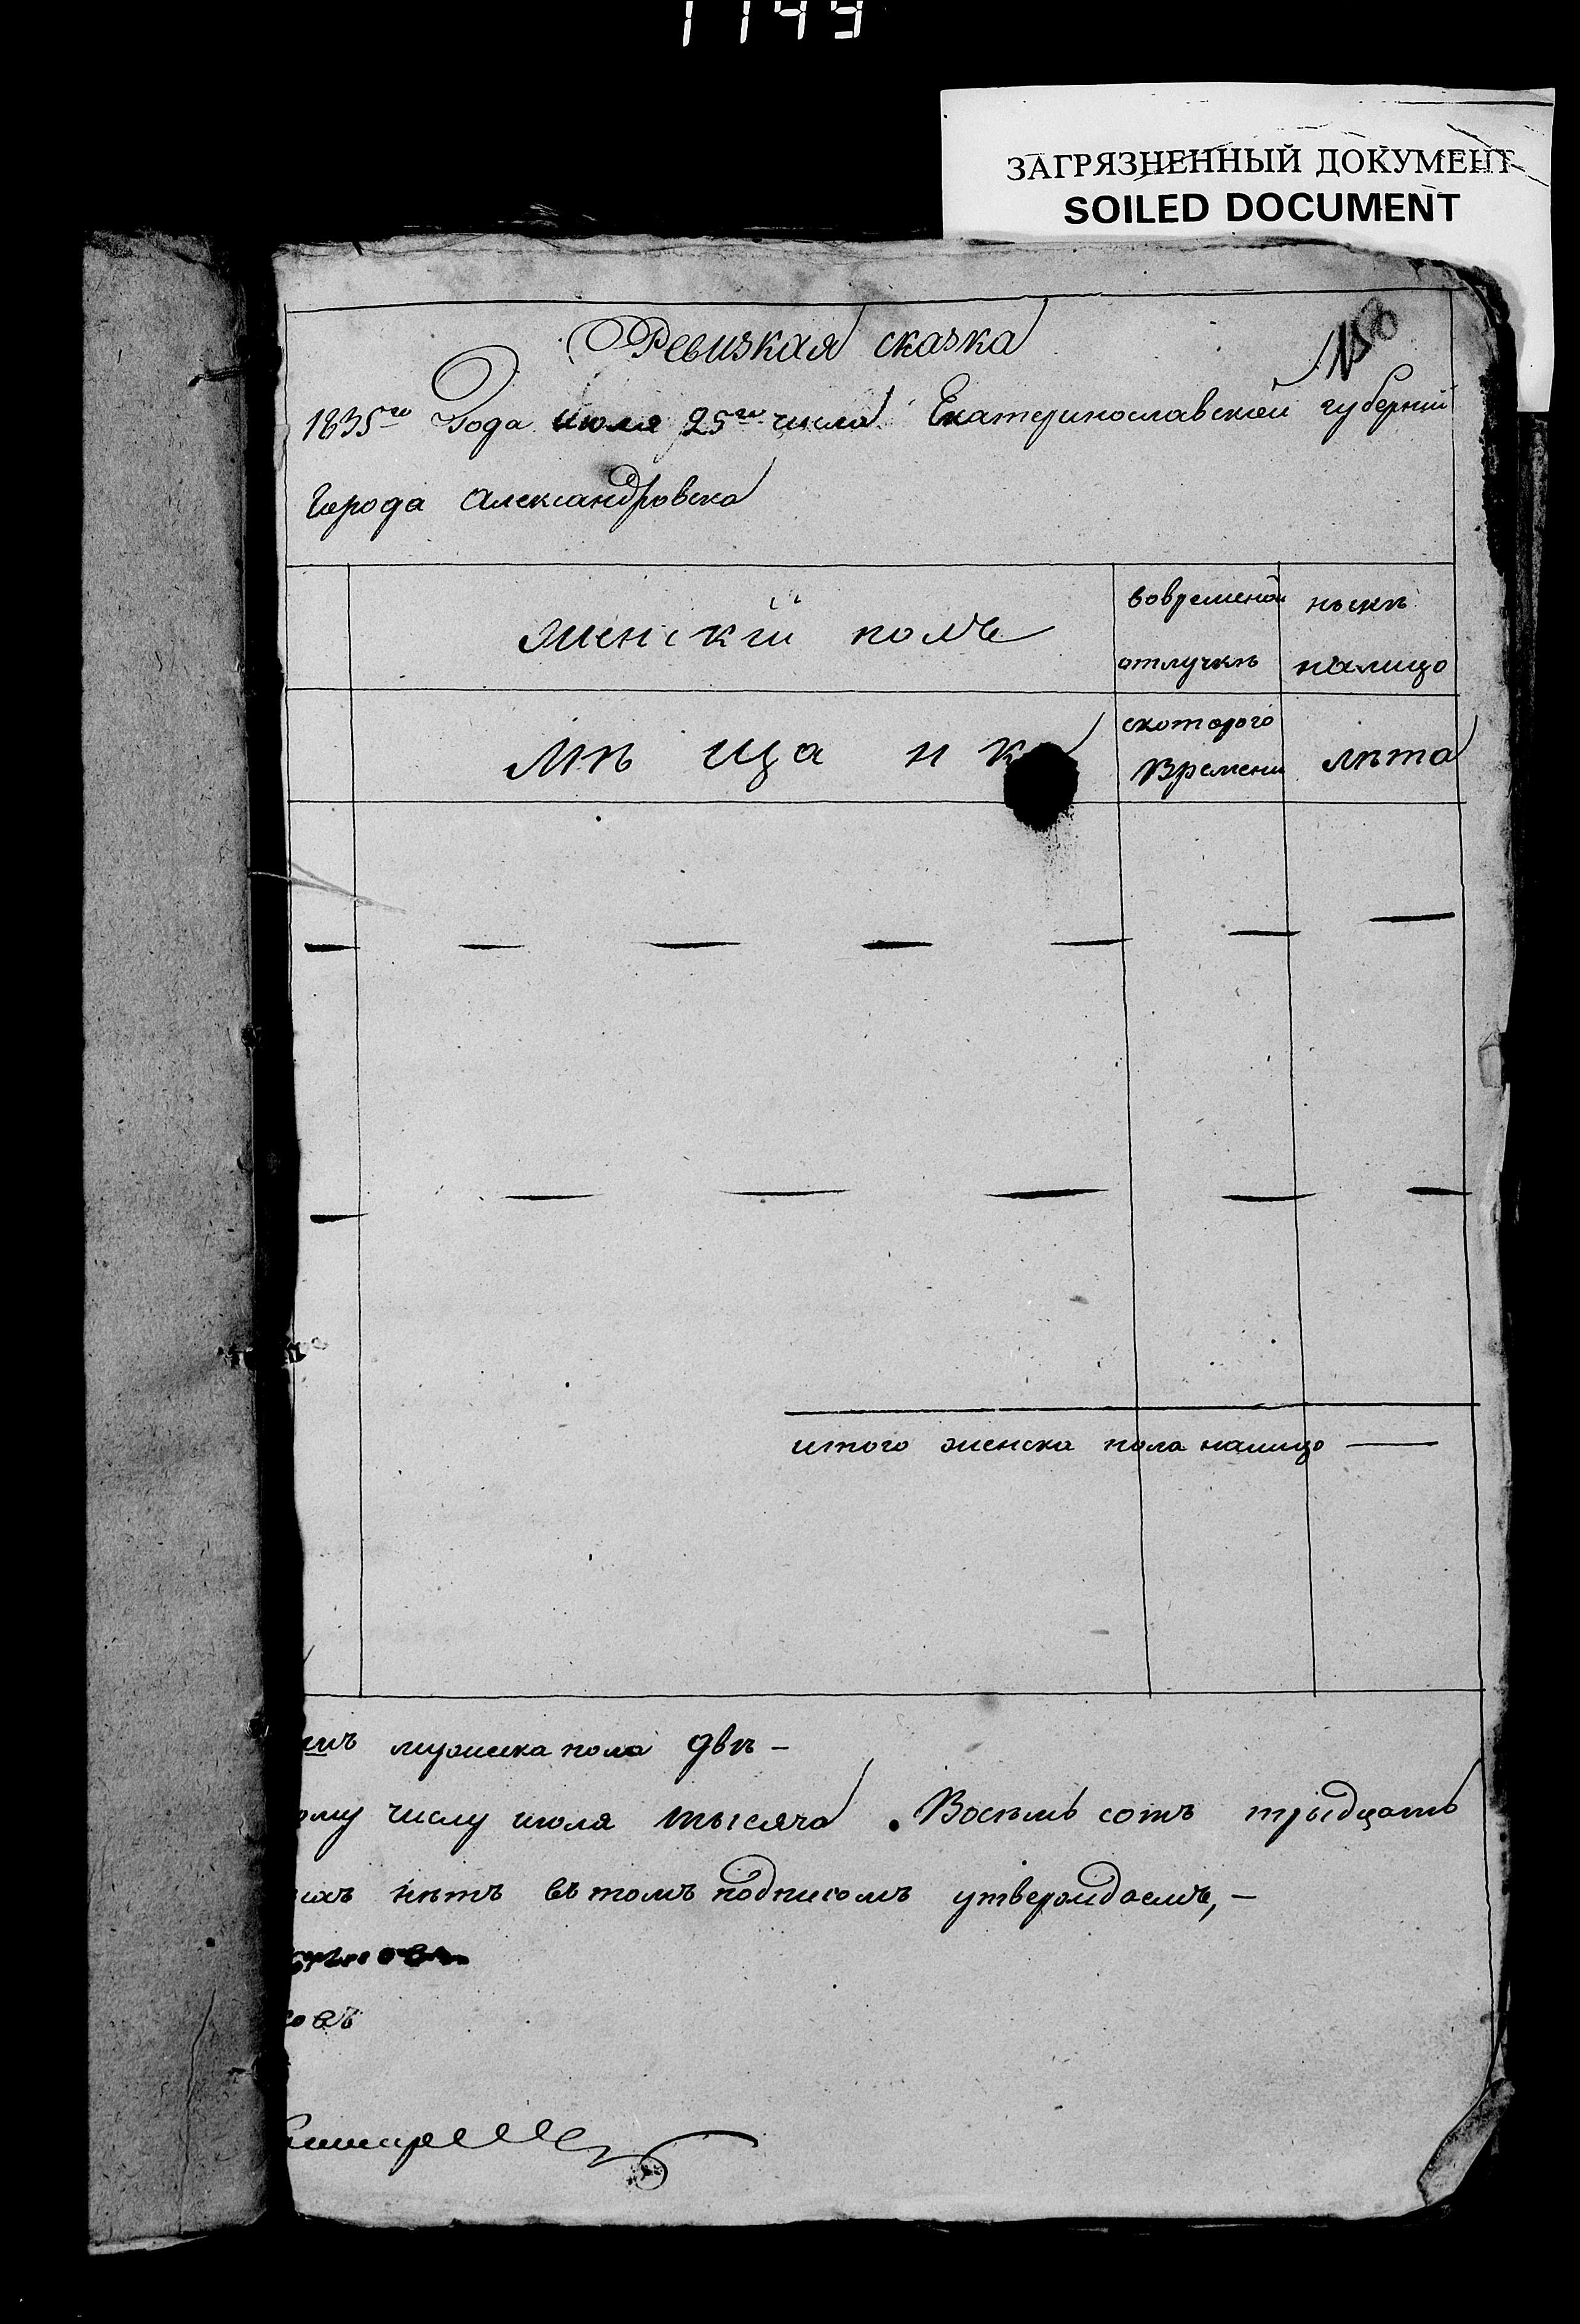 1149
ЗАГРЯЗНЕННЫЙ ДОКУМЕНТ
SOILED DOCUMENT
Ревизкая сказка
1835го Года июля 25го числа Екатеринославской губернїи
Города Александровска
женскїй полъ
вовременой отлучкѣ
нынѣ налицо
Мѣ ща н к
скоторого Времени
лѣта
итого женска пола налицо —
мужска пола двѣ —
ому числу июля тысяча Восѣмь сотъ трыдцать
нѣтъ въ томъ подписомъ утверждаемъ, —
совъ